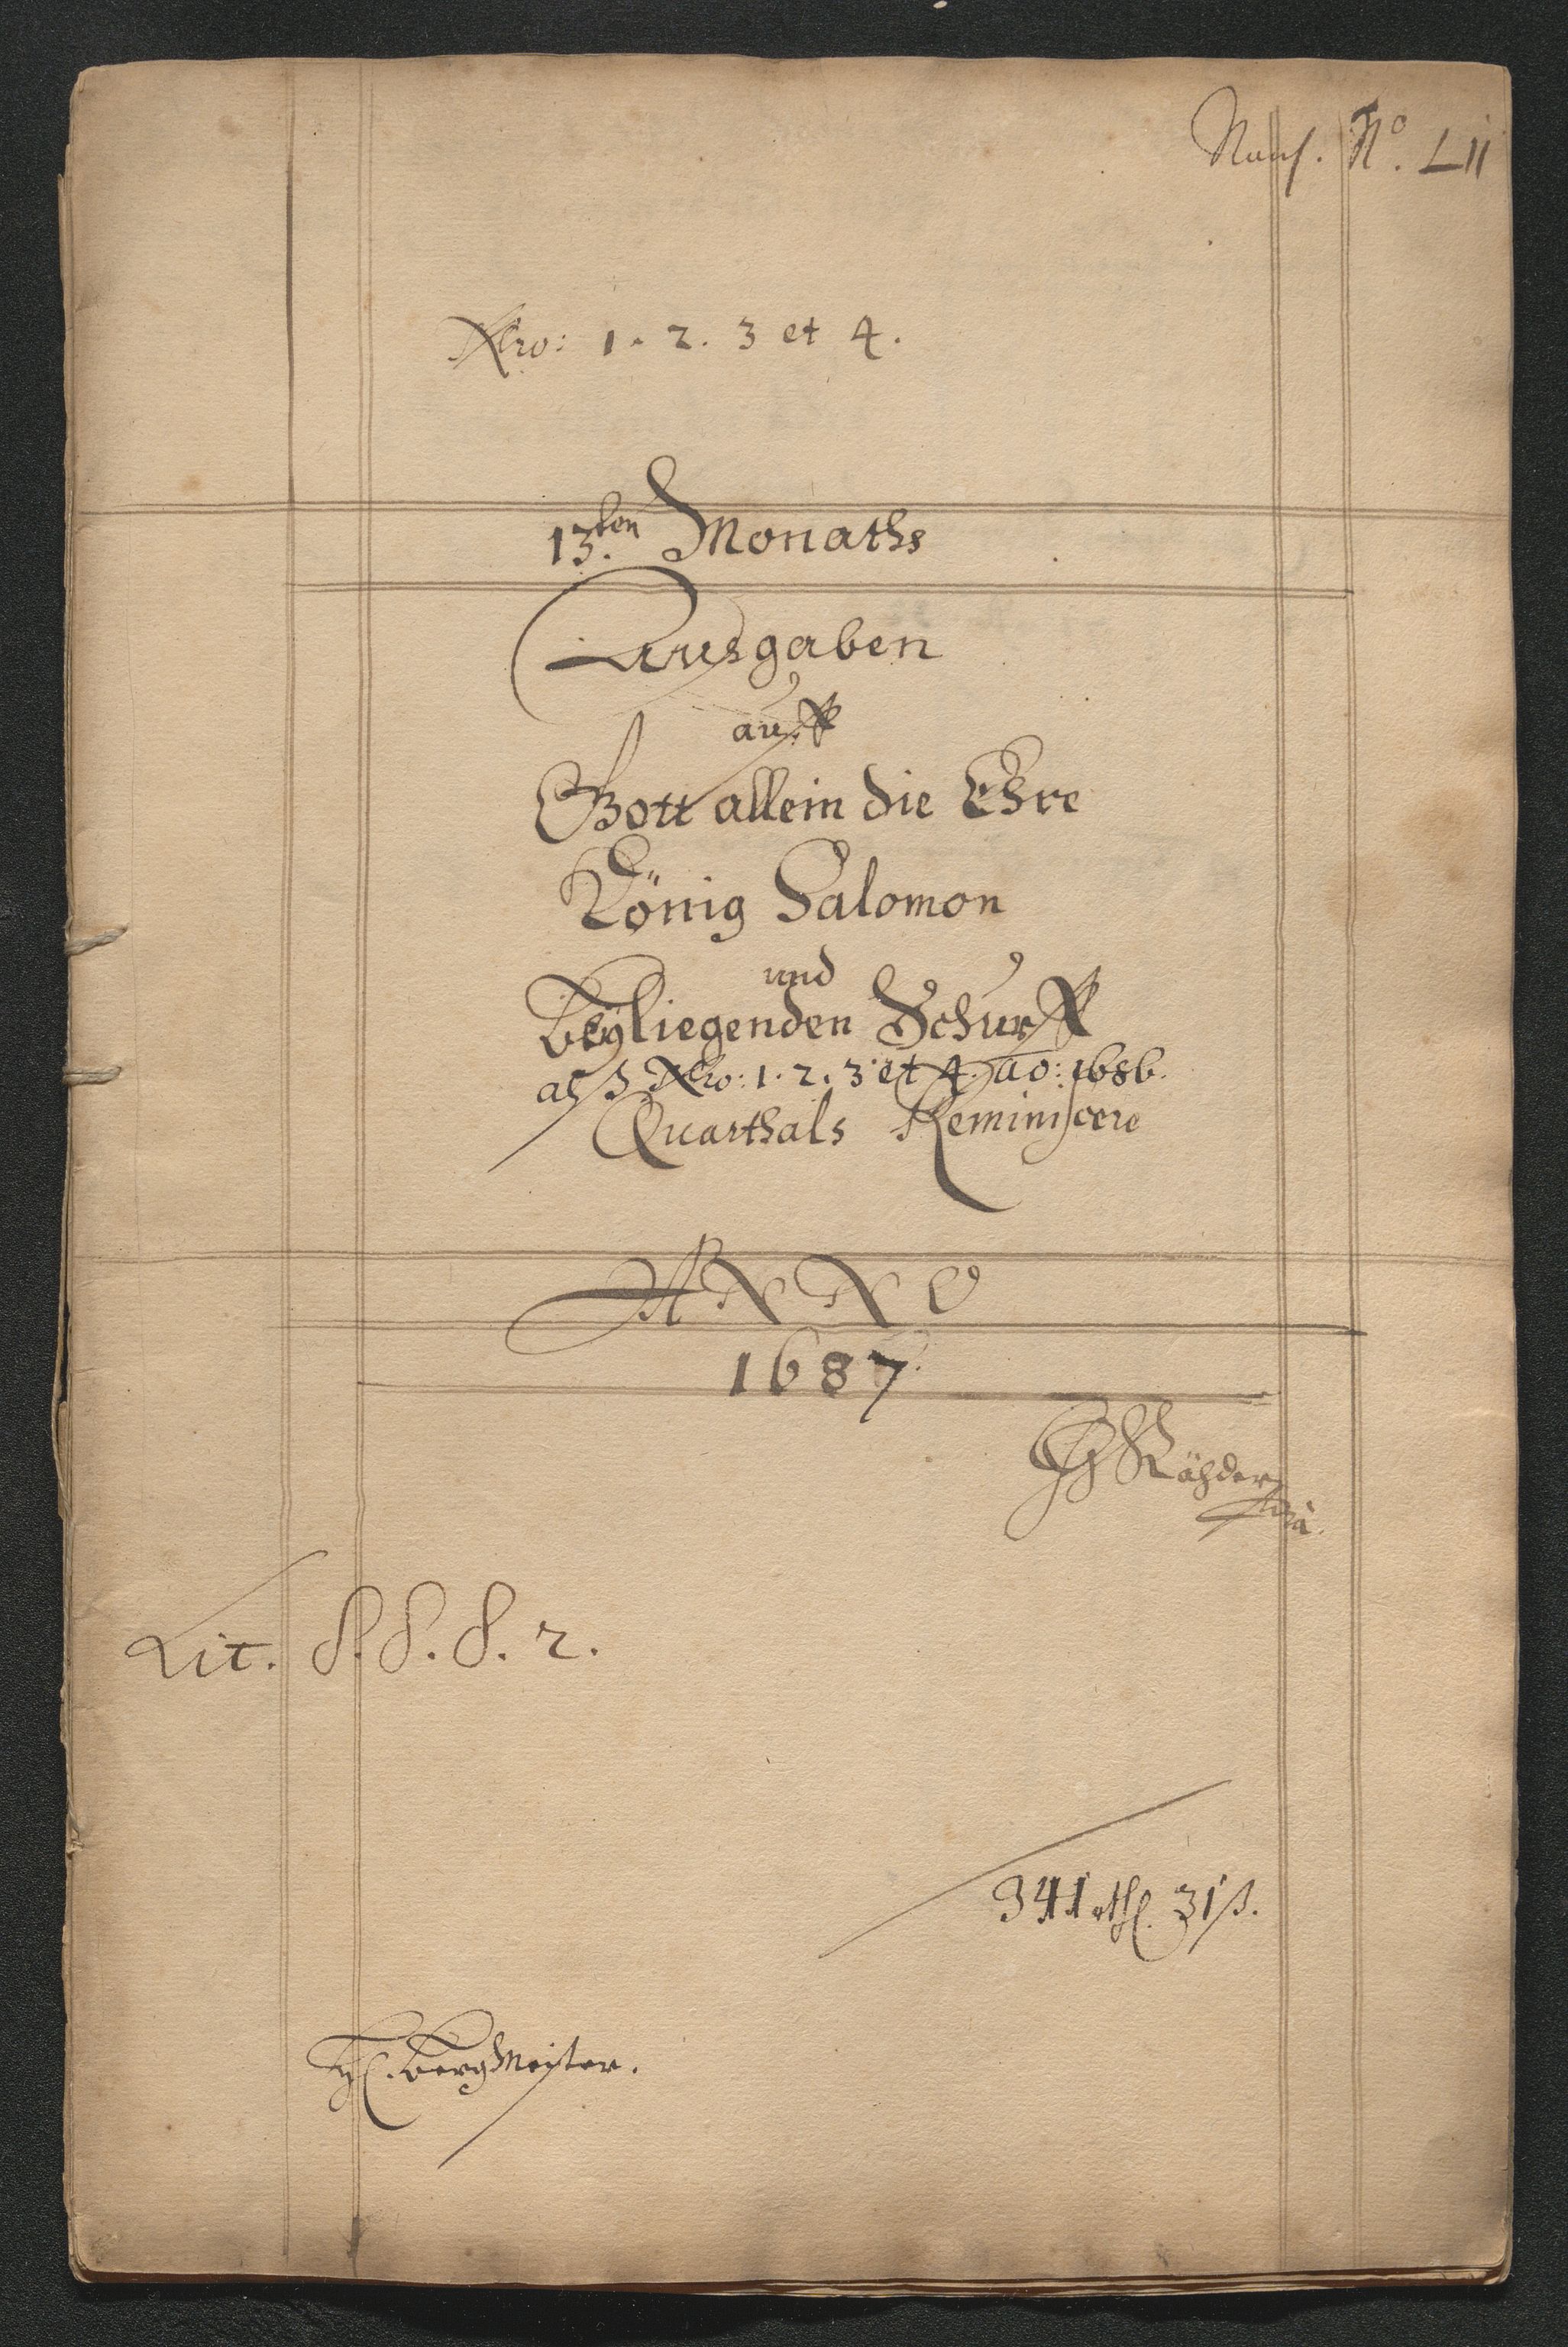 No. LII
Nro: 1. 2. 3 et 4.
13.ten Monaths
Ausgaben
auff
Gott allein die Ehre
König Salomon
und
beyliegenden Schurff
alß Nro: 1. 2. 3 et 4. ao: 1686.
Quarthals Reminiscere
ANNO
1687.
Lit. S. S. S. 2.
341 rthl. 31 ß.
H. Berg Meister.